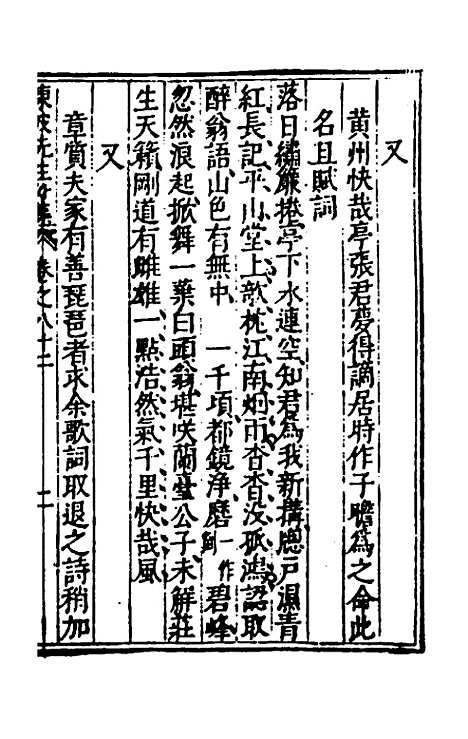 又
黄州快哉亭張君夢得謫居時作子瞻爲之命此
名且賦詞
落日繡簾捲亭下水連空知君爲我新搆牕戶濕青
紅長記平山堂上欹枕江南烟雨杳杳没孤鴻認取
醉翁語山色有無中　一千項都鏡浄磨一作剗碧峰
忽然浪起掀舞一葉白頭翁堪咲蘭臺公子未解莊
生天籟剛道有雌雄一點浩然氣千里快哉風
又
章質夫家有善琵琶者求余歌詞取退之詩稍加
東坡先生 集 卷之八十二　二